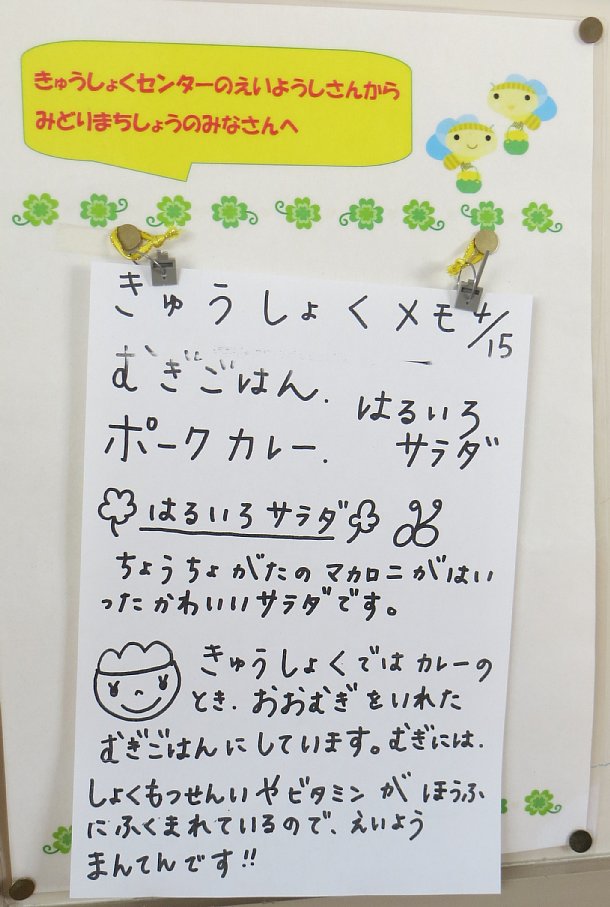 きゅうしょくセンターのえいようしさんから
みどりまちしょうのみなさんへ
きゅうしょくメモ 4/15
むぎごはん.
はるいろ
ポークカレー.
サラダ
はるいろサラダ
ちょうちょがたのマカロニがはい
ったかわいいサラダです。
きゅうしょくではカレーの
とき.おおむぎをいれた
むぎごはんにしています。むぎには.
しょくもつせんいやビタミンがほうふ
にふくまれているので、えいよう
まんてんです!!